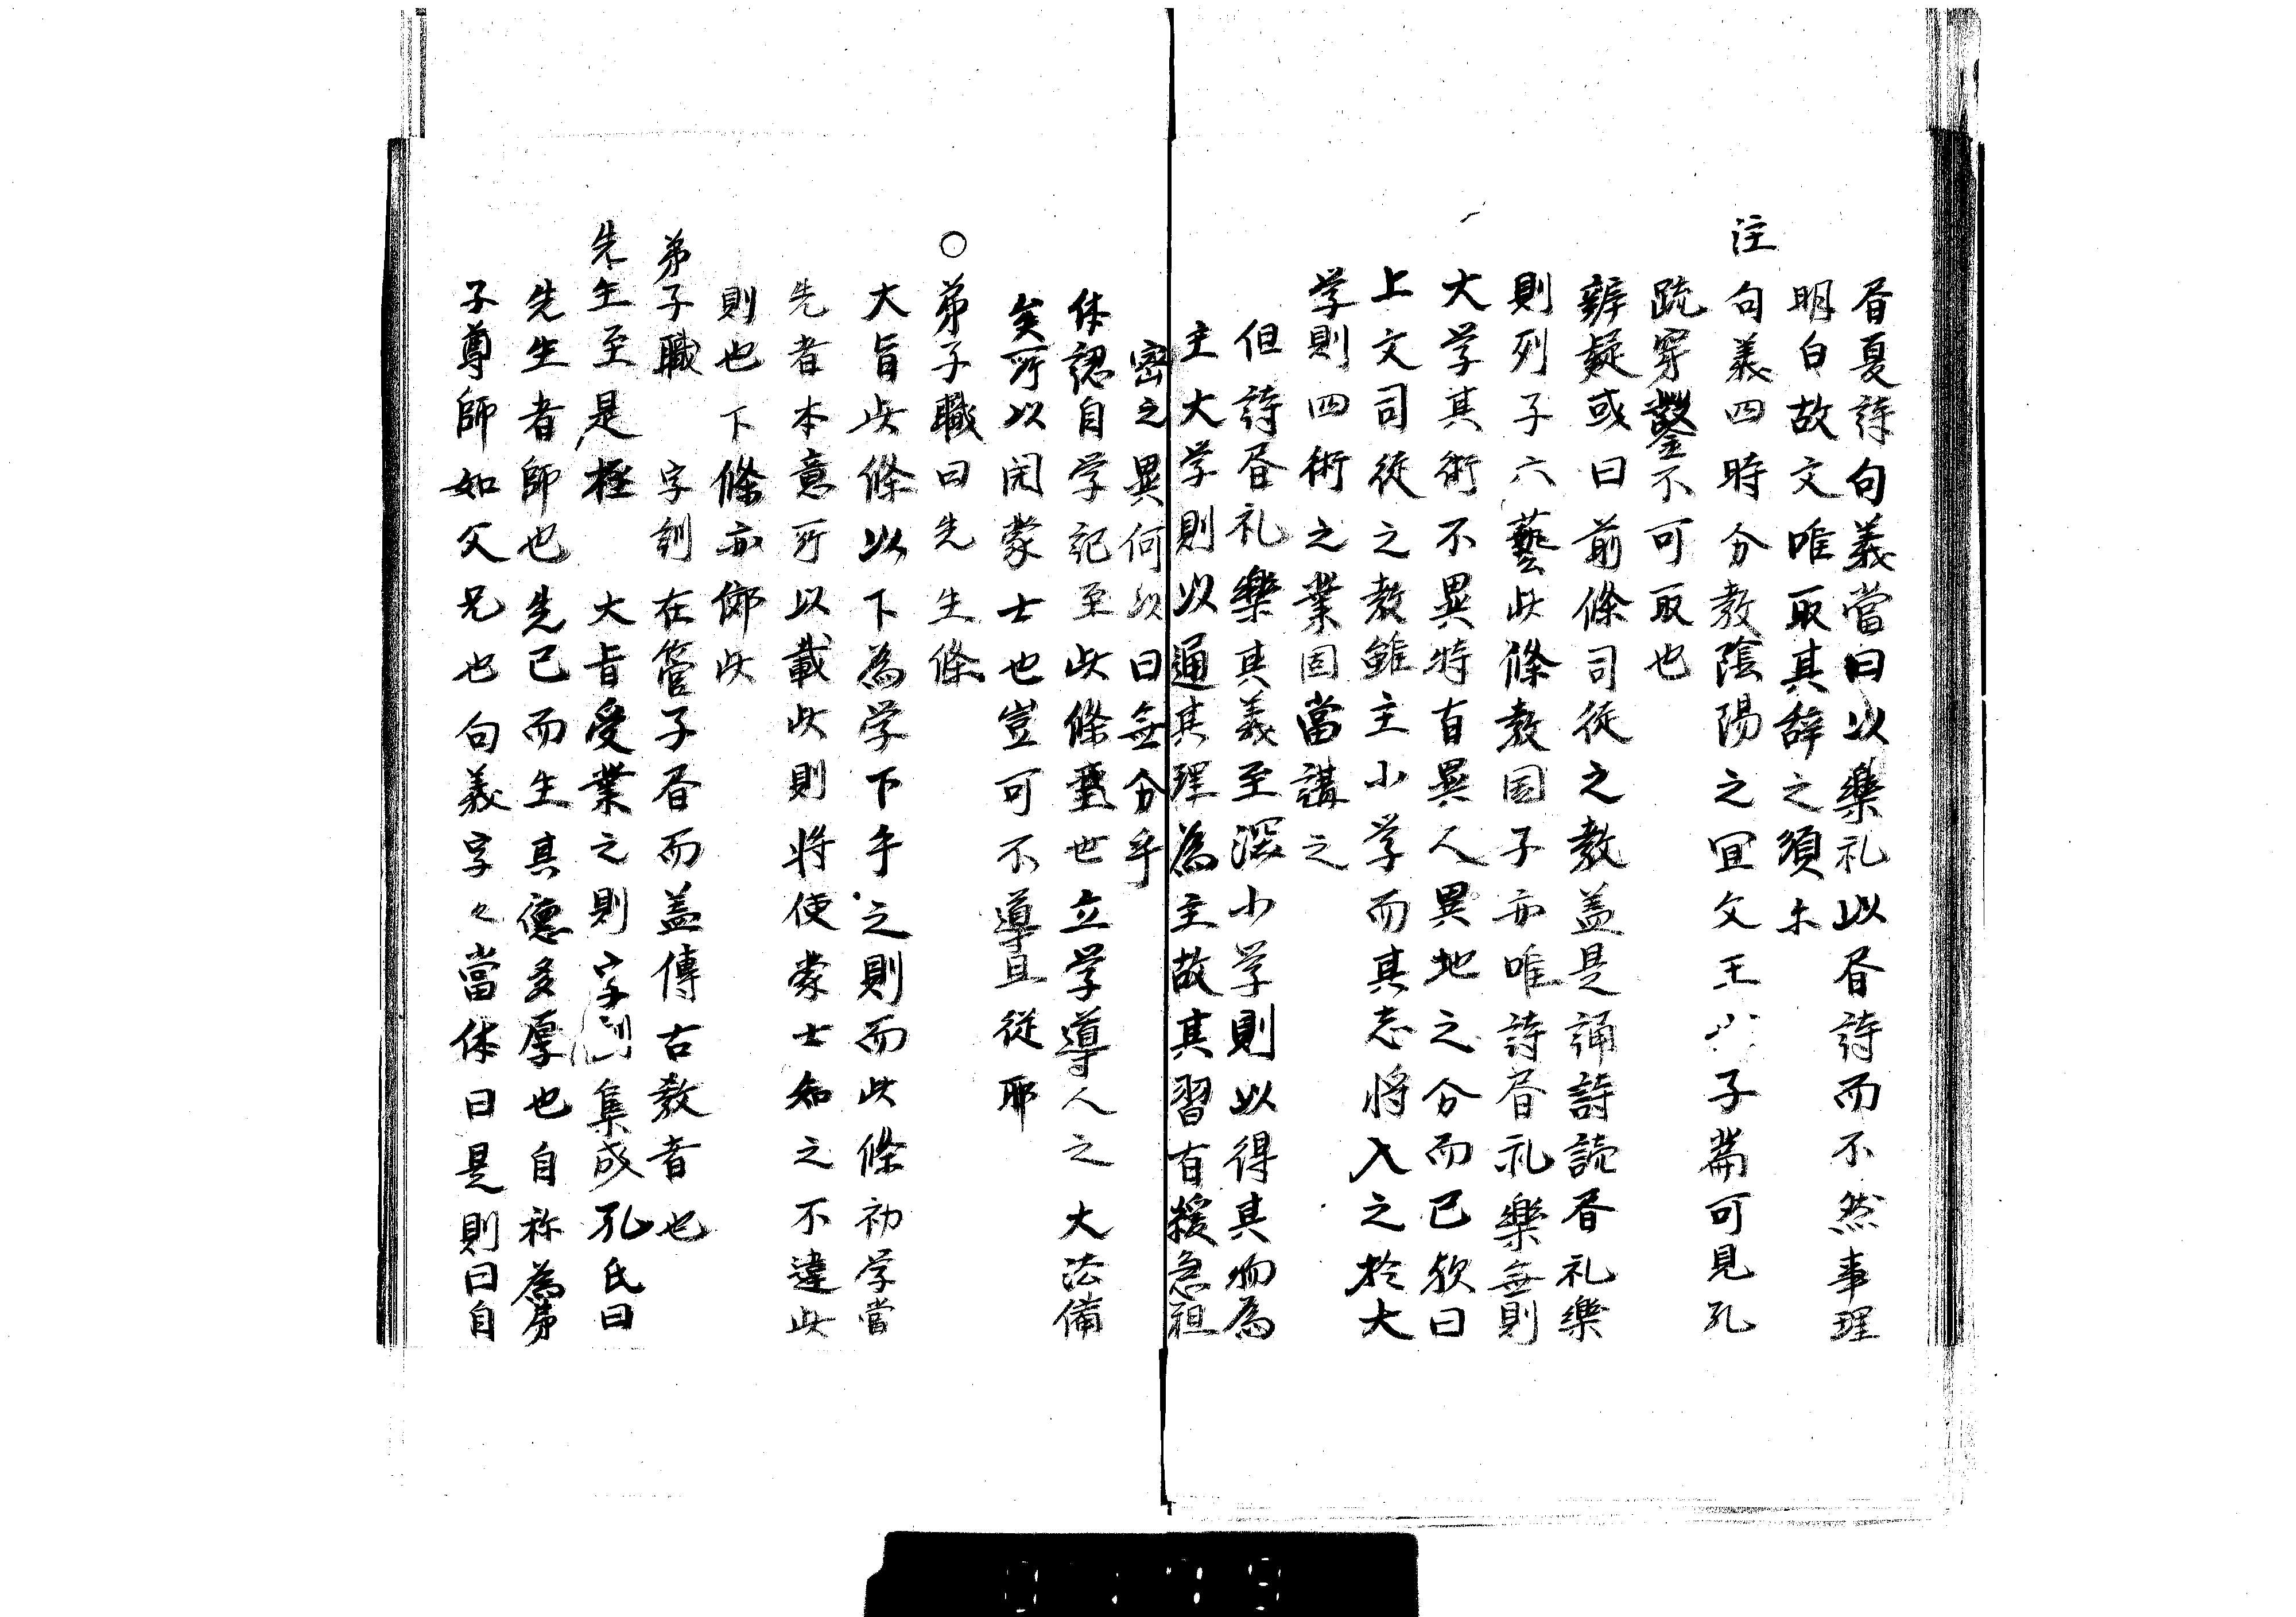 昏夏詩句義當曰以樂礼以昏詩而不然事理
明白故文唯取其辞之須耳
注句義四時分教陰陽之宜文王 子篇可見孔
疏穿鑿不可取也
辨疑或曰前條司徒之教蓋是誦詩読昏礼樂
則列子六藝此條教国子亦唯詩昏礼樂無則
大学其術不異特有異人異地之分而已欤曰
上文司徒之教雖主小学而其志将入之於大
学則四術之業固當講之
但詩昏礼樂其義至深小学則以得其物為
主大学則以通其理為主故其習有援急祖
密之異何以曰無分乎
体認自学記至此條 世立学導人之大法備
矣所以闬蒙士也豈可不導且從耶
○弟子職曰先生條
大旨此條以下為学下手之則而此條初学當
先者本意所以載此則将使蒙士知之不違此
則也下條亦倣此
弟子職 字訓在管子昏而蓋傳古教者也
先生至是極 大旨受業之則字訓集成孔氏曰
先生者師也先己而生其德多厚也自称為弟
子尊師如父兄也句義字々當体曰是則曰自